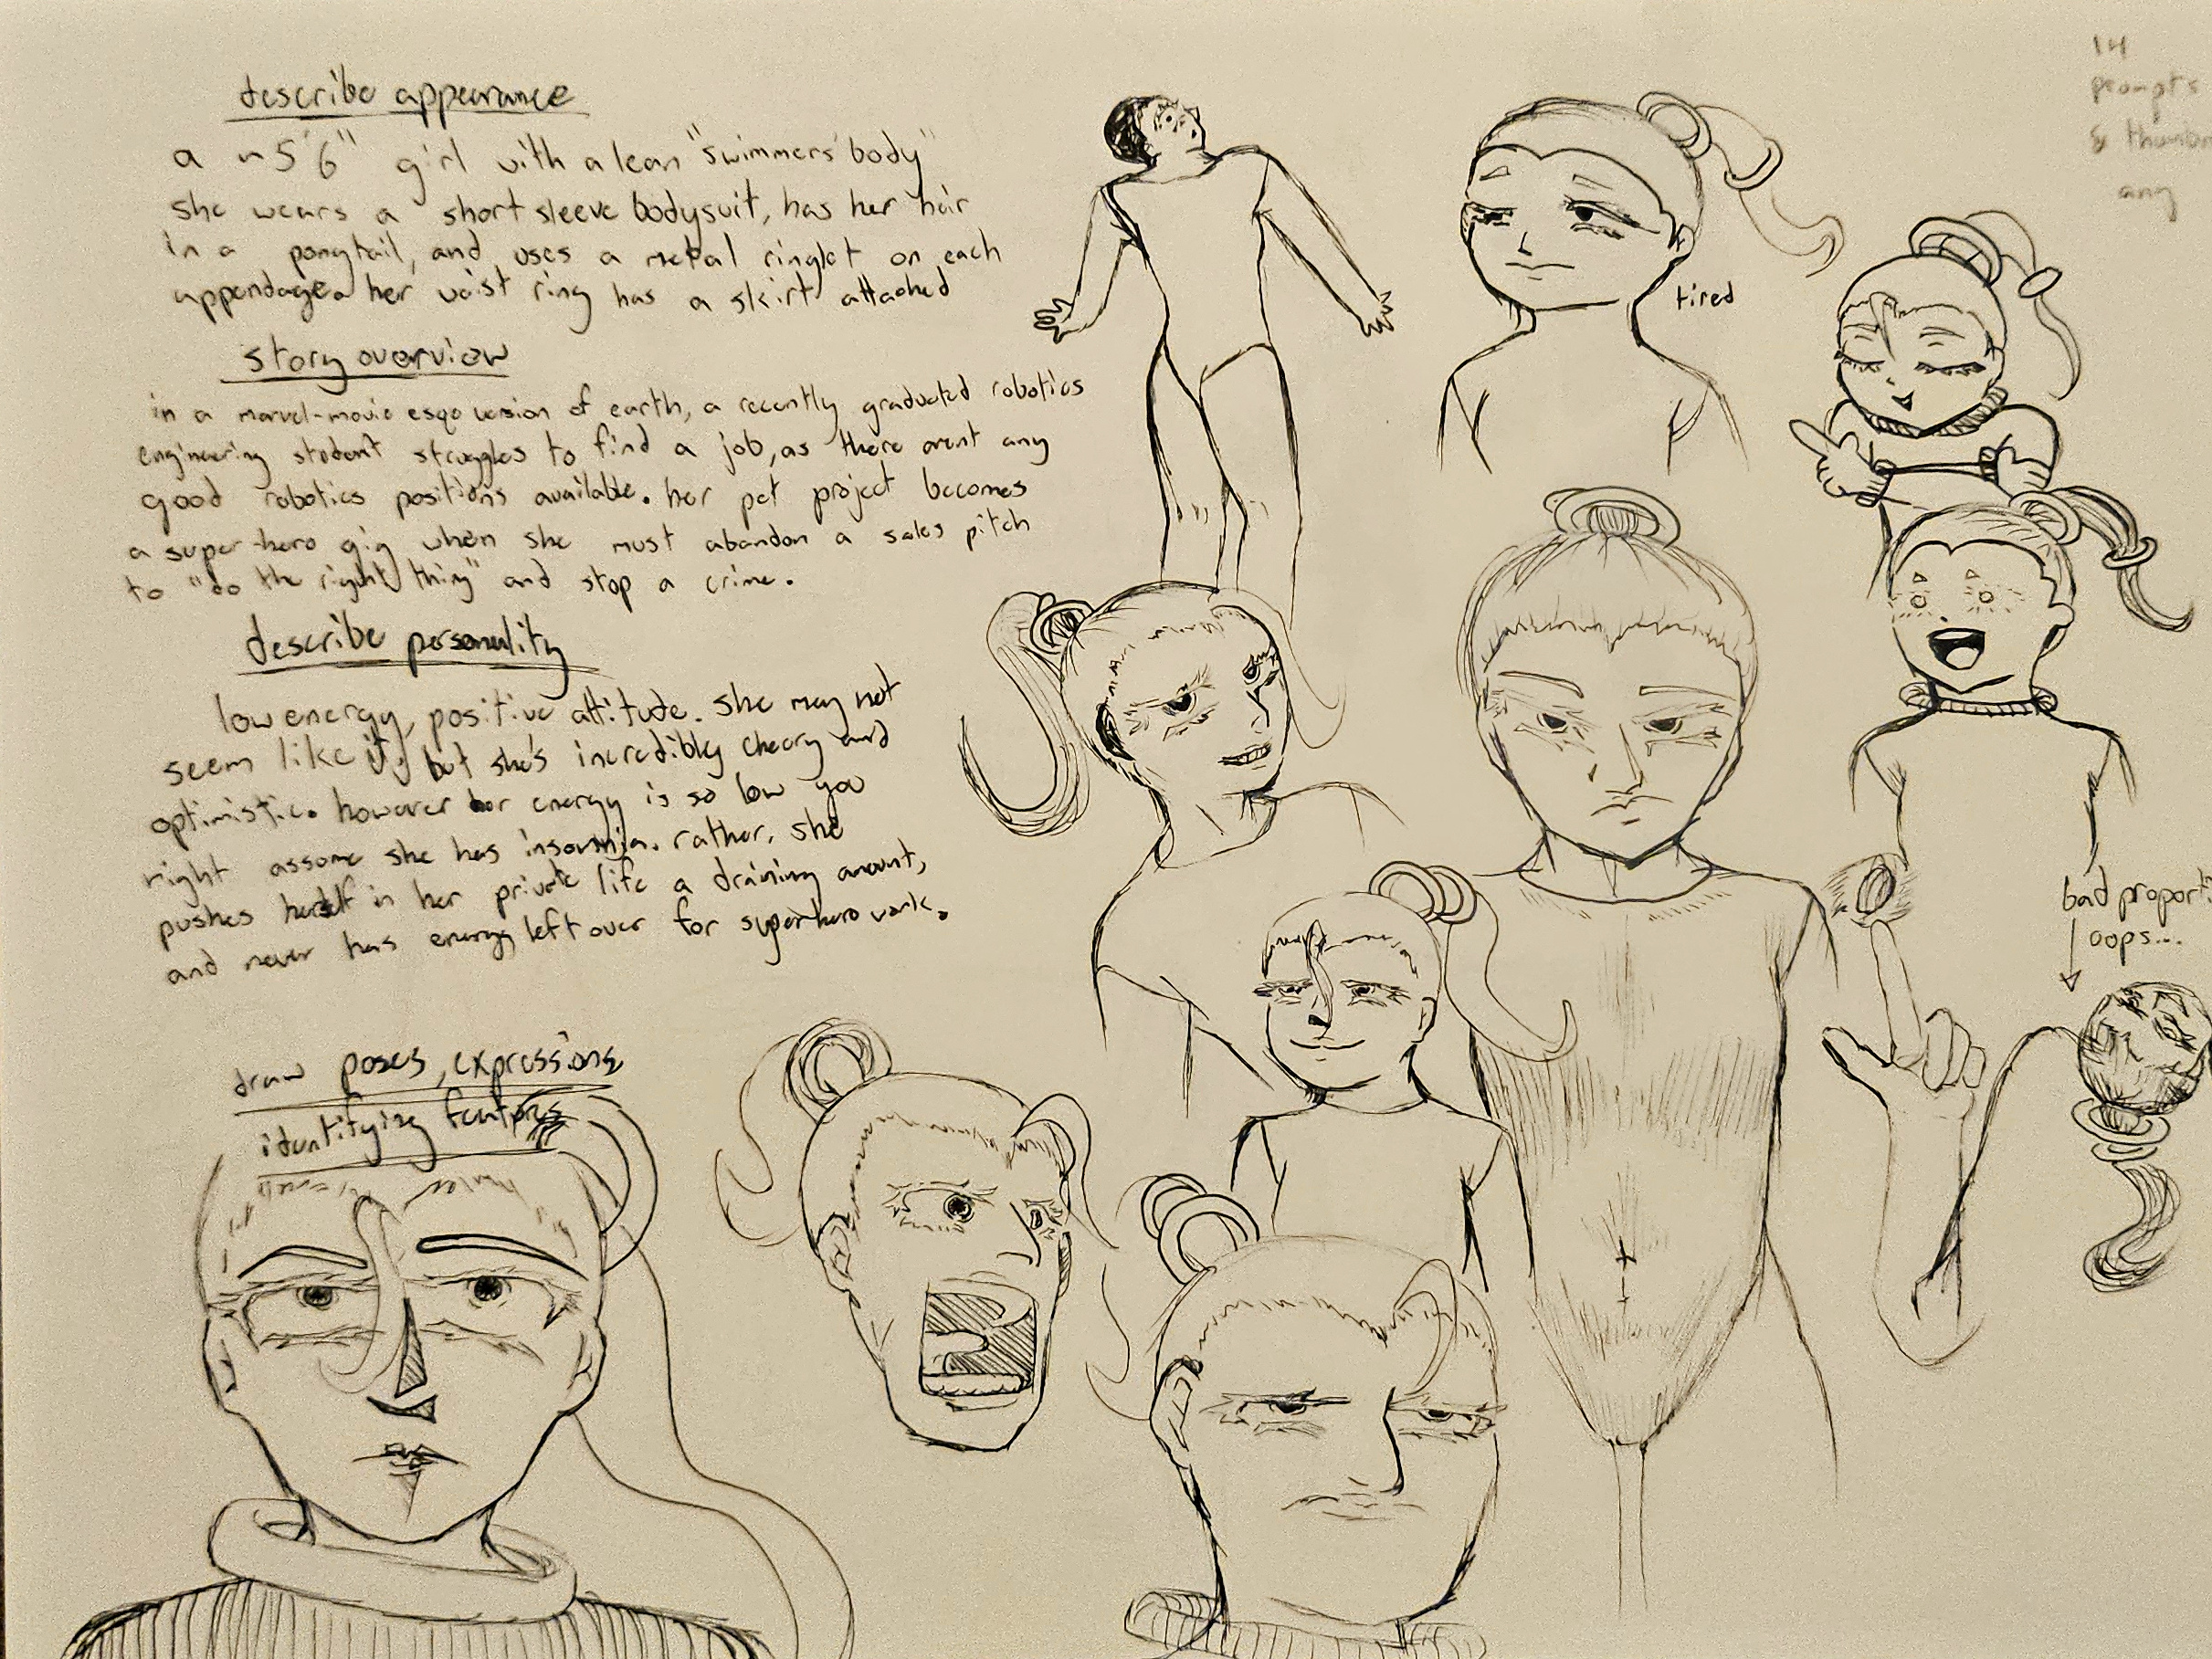 describe appearance
a ~5'6" girl with a lean "swimmers' body"
she wears a short sleeve bodysuit, has her hair
in a ponytail, and uses a metal ringlet on each
appendage. her waist ring has a skirt attached
story overview
in a marvel-movie esqe version of earth, a recently graduated robotics
engineering student struggles to find a job, as there arent any
good robotics positions available. her pet project becomes
a super-hero gig when she must abandon a sales pitch
to "do the right thing" and stop a crime.
describe personality
low energy, positive attitude. she may not
seem like it, but she's incredibly cheery and
optimistic. however her energy is so low you
right assome she has insomnia. rather, she
pushes herself in her private life a draining amount,
and never has energy left over for superhero work.
draw poses, expressions
identifying features
tired
14
prompts
&
any
bad proport
oops...